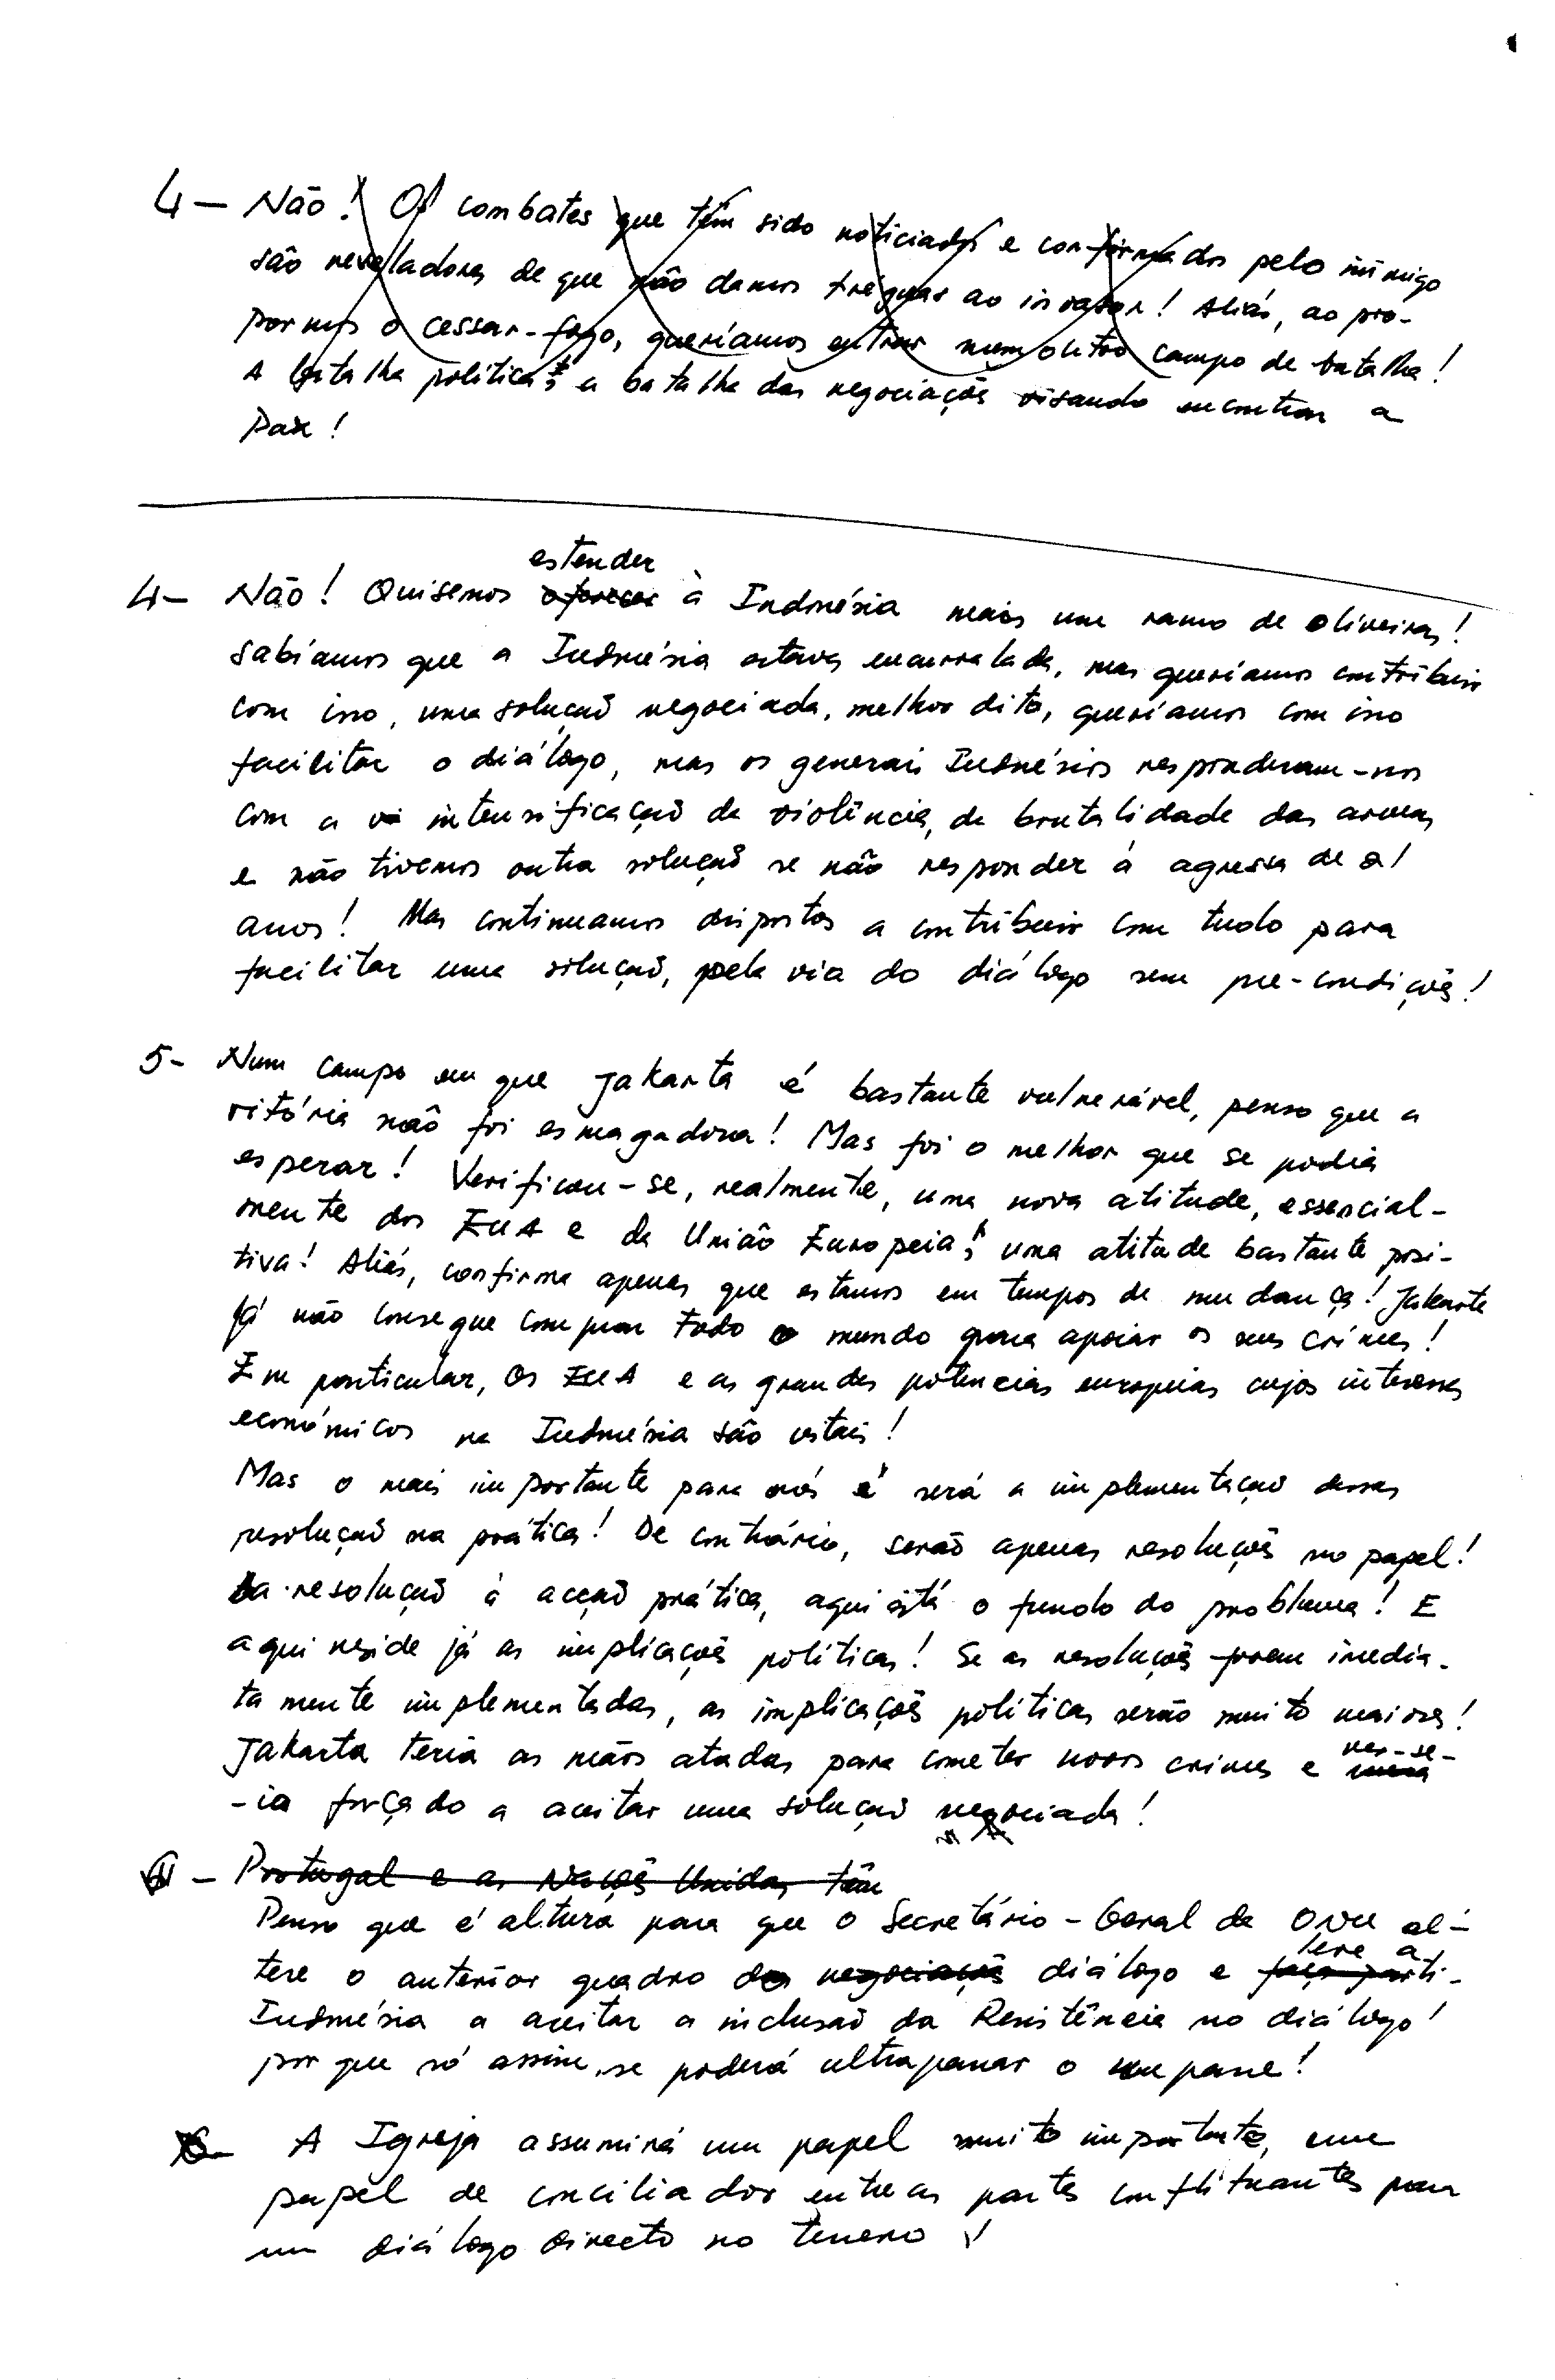 4 — Não! Os combates que têm sido noticiados e confirmados pelo inimigo
são reveladores de que não damos tréguas ao invasor! Aliás, ao pro-
pormos o cessar-fogo, queríamos entrar num outro campo de batalha!
A batalha política, a batalha das negociações visando encontrar a
Paz!
estender
4- Não! Quisemos oferecer à Indonésia mais um ramo de oliveiras!
Sabíamos que a Indonésia estava encurralada, mas queríamos contribuir
com isso, uma solução negociada, melhor dito, queríamos com isso
facilitar o diálogo, mas os generais Indonésios responderam-nos
com a vi intensificação da violência, da brutalidade das armas
e não tivemos outra solução se não responder à agressa de 21
anos! Mas continuamos dispostos a contribuir com tudo para
facilitar uma solução, pela via do diálogo sem pre-condições!
5- Num campo em que Jakarta é bastante vulnerável, penso que a
vitória não foi esmagadora! Mas foi o melhor que se podia
esperar! Verificou-se, realmente, uma nova atitude, essencial-
mente dos EUA e da União Europeia, uma atitude bastante posi-
tiva! Aliás, confirma apenas que estamos em tempos de mudança! Jakarta
já não consegue comprar todo o mundo para apoiar os seus crimes!
Em particular, os EUA e as grandes potencias europeias cujos interesses
económicos na Indonésia são vitais!
Mas o mais importante para nós é será a implementação dessas
resolução na prática! De contrário, serão apenas resoluções no papel!
Da resolução à acção prática, aqui está o fundo do problema! E
aqui reside já as implicações políticas! Se as resoluções forem imedia-
tamente implementadas, as implicações políticas serão muito maiores!
Jakarta teria as mãos atadas para cometer novos crimes e ver-se-
-ia forçado a aceitar uma solução negociada!
— Portugal e as Nações Unidas têm
Penso que é altura para que o Secretário-Geral da ONU al-
tere o anterior quadro das negociações diálogo e leve a
Indonésia a aceitar a inclusão da Resistência no diálogo!
por que só assim, se poderá ultrapassar o impasse!
6- A Igreja assumirá um papel muito importante, um
papel de conciliador entre as partes conflituantes para
um diálogo directo no terreno!